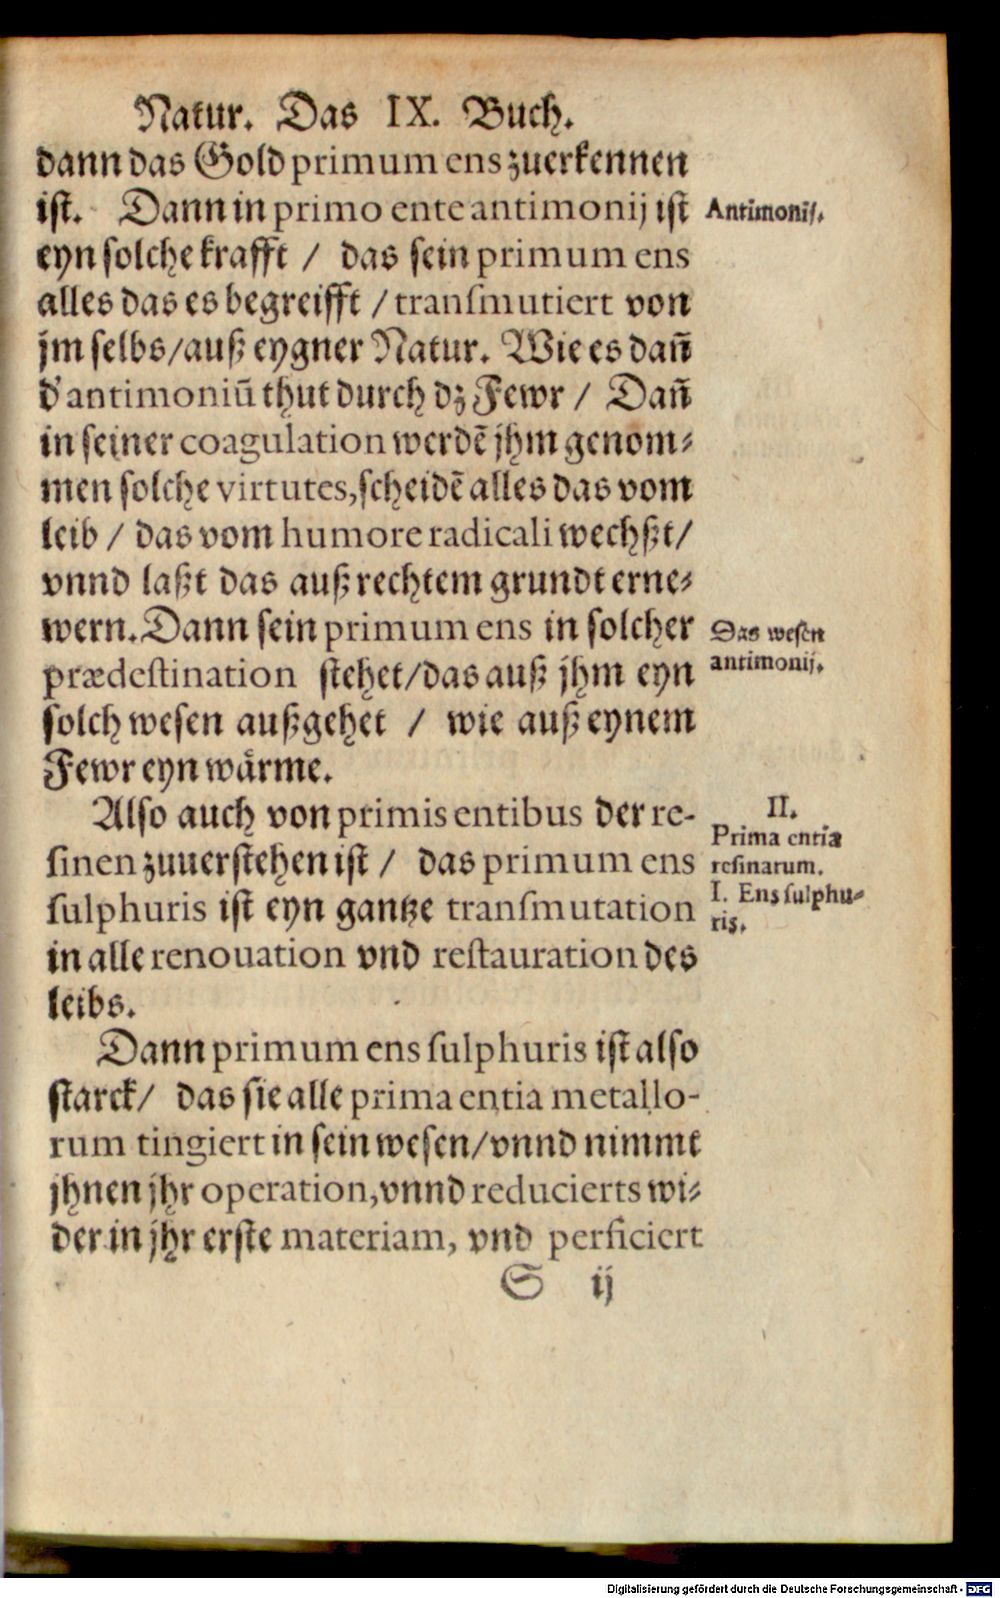 Natur. Das IX. Buch.
dann das Gold primum ens zuerkennen
ist. Dann in primo ente antimonij ist
Antimonij.
eyn solche krafft / das sein primum ens
alles das es begreifft / transmutiert von
jm selbs/auß eygner Natur. Wie es dañ
d' antimoniũ thut durch dz Fewr / Dañ
in seiner coagulation werdẽ jhm genom⸗
men solche virtutes,scheidẽ alles das vom
leib / das vom humore radicali wechßt/
vnnd laßt das auß rechtem grundt erne⸗
wern. Dann sein primum ens in solcher
Das wesen
antimonij.
prædestination stehet/das auß jhm eyn
solch wesen außgehet / wie auß eynem
Fewr eyn waͤrme.
Also auch von primis entibus der re-
sinen zuuerstehen ist / das primum ens
II.
Prima entia
resinarum.
I. Ens sulphu⸗
ris.
sulphuris ist eyn gantze transmutation
in alle renouation vnd restauration des
leibs.
Dann primum ens sulphuris ist also
starck/ das sie alle prima entia metallo-
rum tingiert in sein wesen/vnnd nimmt
jhnen jhr operation,vnnd reducierts wi⸗
der in jhr erste materiam, vnd perficiert
S ij
Digitalisierung gefördert durch die Deutsche Forschungsgemeinschaft - DFG